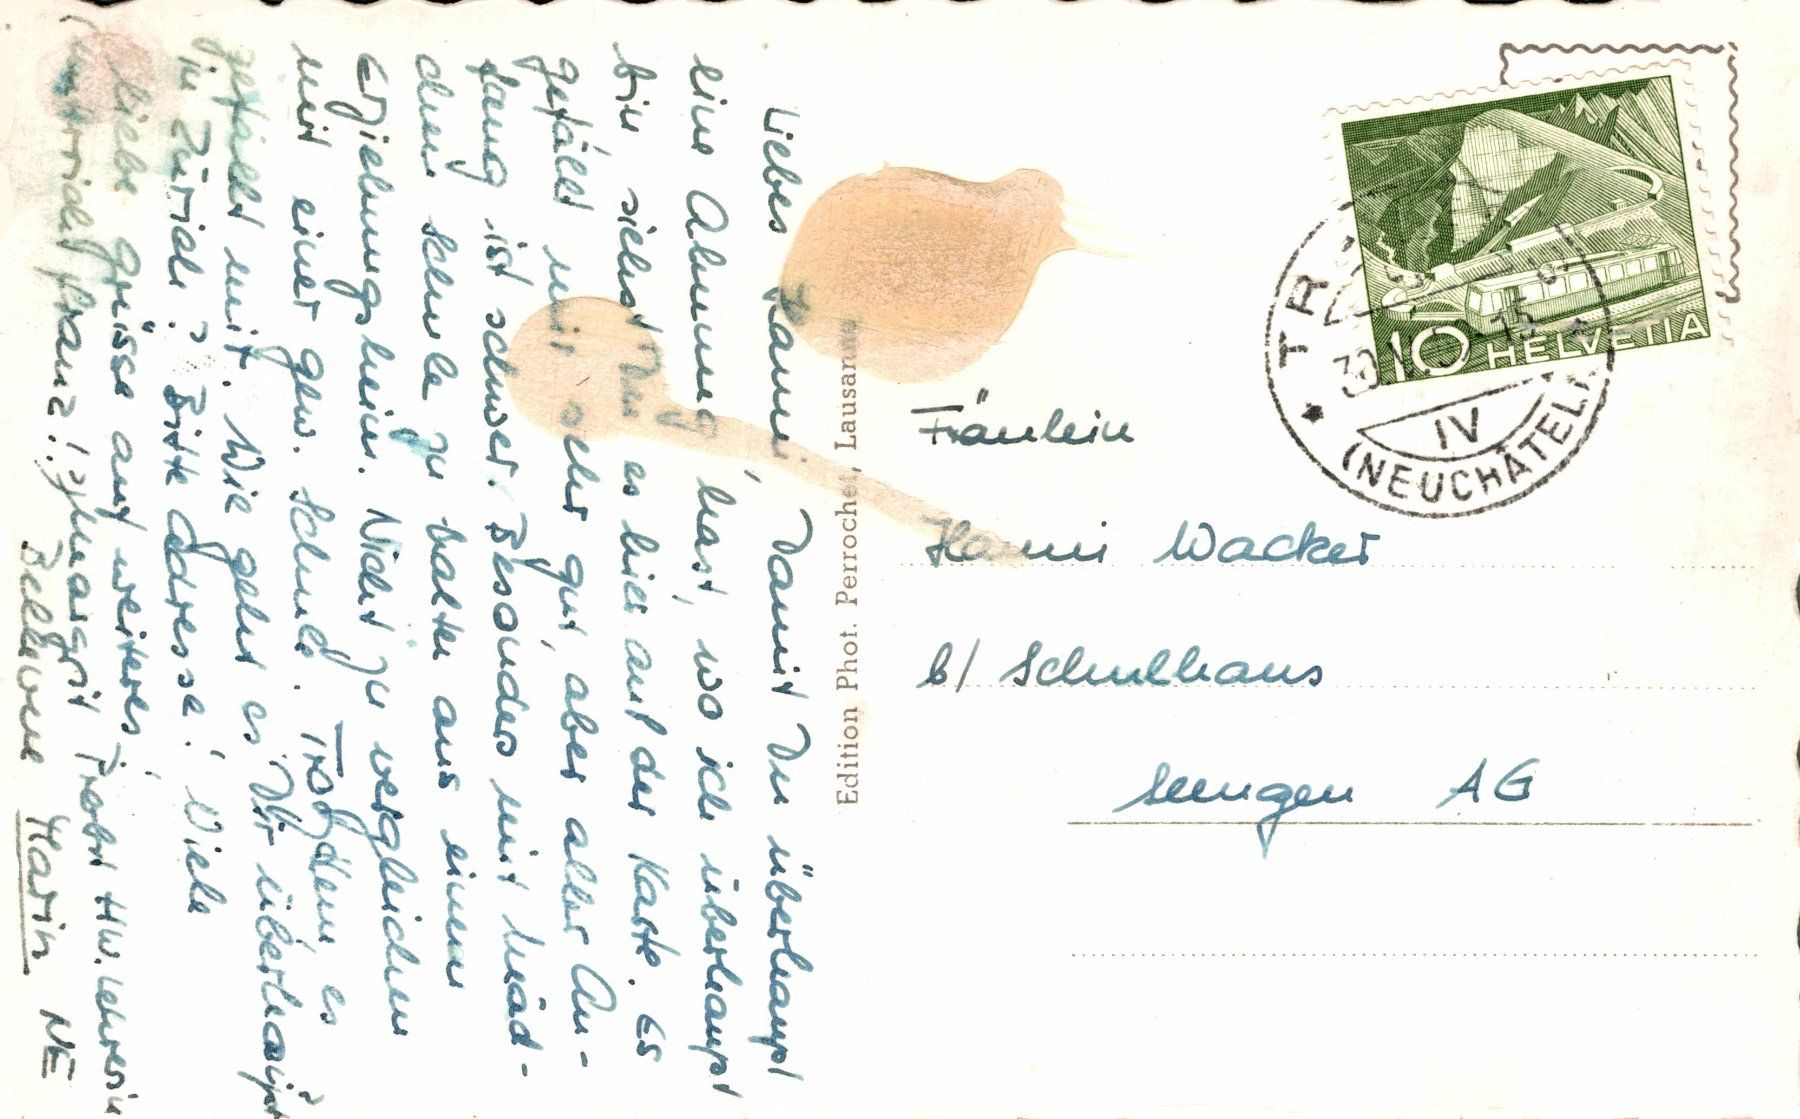 Liebes Hanni, Damit Du überhaupt
eine Ahnung hast, wo ich überhaupt
bin siehst Du es hier auf der Karte. Es
gefällt mir sehr gut, aber aller An-
fang ist schwer. Besonders mit Mäd-
chen schule zu halten aus einem
Erziehungsheim. Nicht zu vergleichen
mit einer gew. Schule. Trotzdem es
gefällt mir. Wie geht es Dir überhaupt
in Zürich? Bitte Adresse! Viele
liebe Grüsse auf weiteres,
Margrit HW. Lehrerin
Bellevue Marin NE
Edition Phot. Perrochet, Lausanne
10 HELVETIA
IV
(NEUCHÂTEL)
Fräulein
Hanni Wacker
b/ Schulhaus
Seengen AG